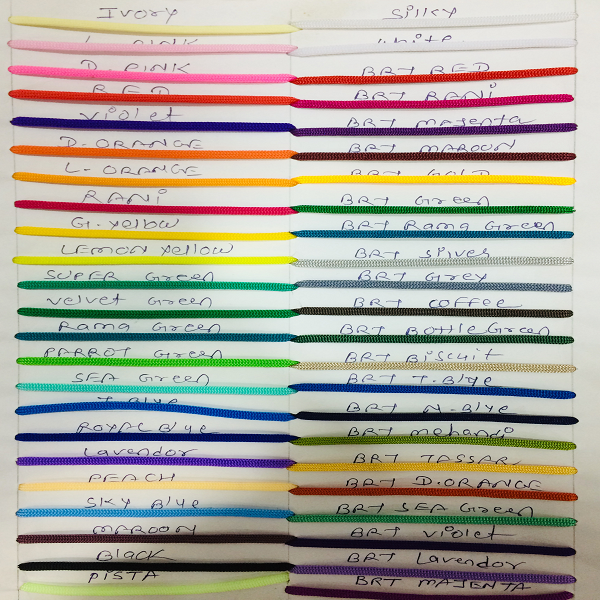 Ivory
L. PINK
D. PINK
RED
Violet
D. ORANGE
L. ORANGE
RANi
G. Yellow
LEMON Yellow
SUPER Green
Velvet Green
Rama Green
PARROT Green
SEA Green
T. Blue
ROYAL Blue
Lavendor
PEACH
SKY Blue
MAROON
BLACK
PISTA
Silky
White
BRT RED
BRT RANi
BRT MAJENTA
BRT MAROON
BRT GOLD
BRT Green
BRT Rama Green
BRT Silver
BRT Grey
BRT COFFEE
BRT Bottle Green
BRT Biscuit
BRT T. Blue
BRT N. Blue
BRT mehandi
BRT TASSAR
BRT D. ORANGE
BRT SEA Green
BRT Violet
BRT Lavendor
BRT MAJENTA